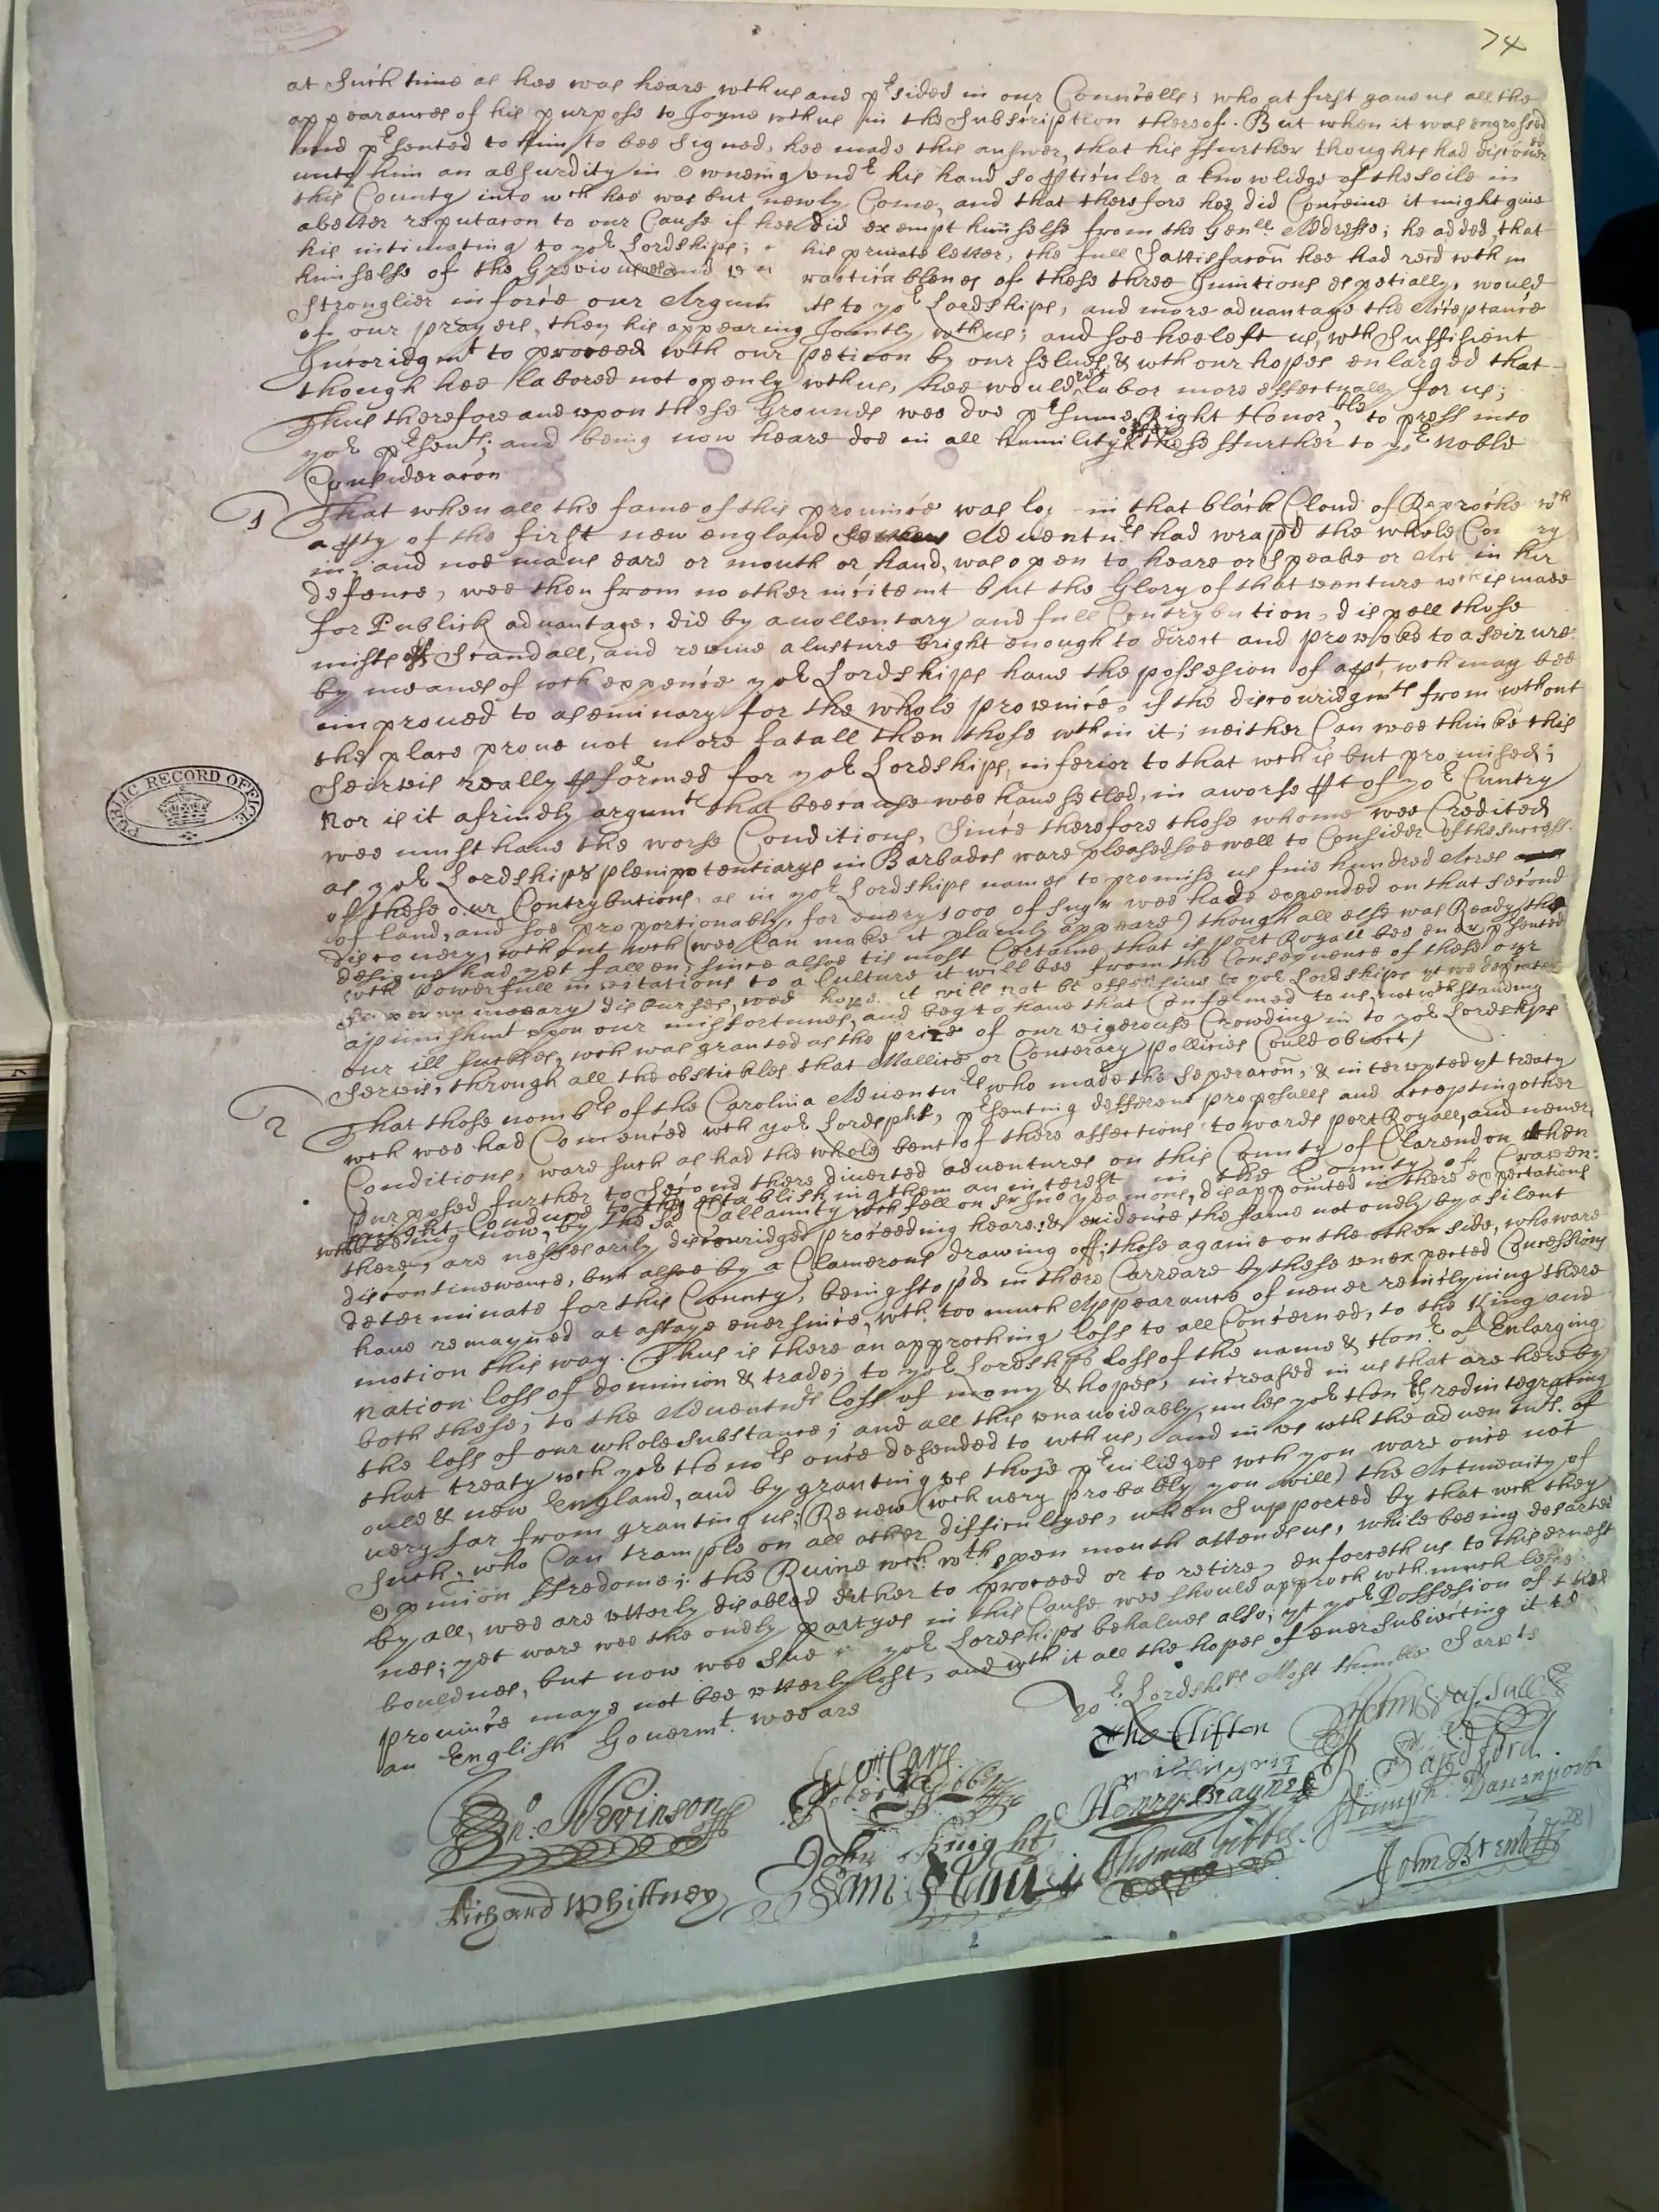 74
at such time as hee was heare wth us and pʳsided in our Councells; who at first gave us all the
appearances of his purpose to Joyne wth us in the Subscription thereof. But when it was engrossed
and pʳsented to him to bee signed, hee made this answer, that his ffurther thoughts had discover
unto him an absurdity in owneing undʳ his hand so pticuler a knowlidge of the soile in
this County into wch hee was but newly Come, and that therefore hee did Conceive it might give
a better reputacon to our Cause if hee did exempt himselfe from the Genˡˡ Address; he added, that
his intimating to yoʳ Lordships, his private letter, the full sattisfacon hee had recd wth in
himselfe of the Grevious and racticablenes of these three Juntions espetially, would
stronglier inforce our Argum ts to yoʳ Lordships, and more advantage the Acceptance
of our prayers, then his appearing Joyntly wth us; and soe hee left us, wth Sufficient
Incoridgmᵗ to proceed wth our peticon by our selves, & wth our hopes enlarged that
though hee labored not openly wth us, hee would labor more effectually for us;
Thus therefore and upon these Grounds wee doe pʳsume Right Honorᵇˡᵉ to press into
yoʳ pʳsenᶜᵉ; and being now heare doe in all humility offer these ffurther to yoʳ Noble
Consideracon
1 That when all the fame of this province was lo in that black Cloud of Reproche wᶜʰ
a pty of the first new england Adventʳˢ had wrapd the whole Con ry
in, and noe mans eare or mouth or hand, was open to heare or speake or Act in her
defence, wee then from no other incitemt but the Glory of that venture wch is made
for Publick advantage, did by a vollentary and full Contrybution, dispell those
mists of Scandall, and revive a lusture bright enough to direct and provoke to a seizure
by meanes of wch expence yoʳ Lordships have the possesion of a pᵗ, wch may bee
improved to a seminary for the whole province, if the discouridgmᵗˢ from wthout
the place prove not more fatall then those wthin it; neither Can wee thinke this
Serveis really pformed for yoʳ Lordships, inferior to that wch is but promised;
Nor is it a frindly argumᵗ that because wee have setled, in a worse pt of yoʳ Cuntry
wee must have the worse Conditions, Since therefore those whome wee Credited
as yoʳ Lordships plenipotentiarys in Barbados ware pleased soe well to Consider of the success
of these our Contrybutions, as in yoʳ Lordships names to promiss us five hundred Acres
of land, and soe proportionably, for every 1000 of sugʳ wee had expended on that second
discovery, wthout wch (wee Can make it plainly appeare) though all else was Ready, the
designe had yet fallen; since alsoe tis most Certaine that if Port Royall bee ever pʳsented
wth Powerfull invitations to a Culture it will bee from the Consequence of these our
disburses, wee hope it will not be offensive to yoʳ Lordships yt wee deprecate
a punishmt upon our misfortunes, and beg to have that Confermed to us, notwthstanding
our ill success, wch was granted as the prize of our vigerouse Crowding in to yoʳ Lordships
Serveis, through all the obstickles that Mallice or Conterary pollicies Could object
2 That those nombʳˢ of the Carolina Adventuʳˢ who made the seperacon, & interupted yt treaty
wch wee had Comenced wth yoʳ Lordsphs, pʳsenting defferent proposalls and accepting other
Conditions, ware such as had the whole bent of there affections towards port Royall, and never
purposed further to second there diverted adventures on this County of Clarendon then
might Conduce to the establishing them an interest in the County of Craven:
who beeing now, by the sd Callamity wch fell on Sr Jno Yeamons, disappointed in there expectations
there, are nessesarily discouridged proceeding heare: & evidence the same not onely by a silent
discontinewance, but alsoe by a Clamerous drawing off; those againe on the other side, who ware
determinate for this County, being stopd in there Carreare by these unexpected Concessions
have remayned at a staye ever since, wth too much Appearance of never reinclyning there
motion this way. Thus is there an approching loss to all Concerned, to the King and
Nation loss of dominion & trade; to yoʳ Lordships loss of the name & Honʳ of Enlarging
both these, to the Adventuʳˢ loss of mony & hopes, increased in us that are hereby
the loss of our whole substance; and all this unavoidably, unles yoʳ Honʳˢ redintegrating
that treaty wch yoʳ Honoʳˢ once desended to wth us, and in us wth the adventuʳˢ of
ould & new England, and by granting us those pʳvilidges wch you ware once not
very far from granting us; Renew (wch very probably you will) the Actiuenity of
such, who Can trample on all other difficultyes, when Supported by that wch they
opinion ffredome; the Ruine wch wth open mouth attends us, while beeing desarted
by all, wee are utterly disabled either to proceed or to retire, enforceth us to this ernest
nes; yet ware wee the onely partyes in this Cause wee should approch wth much less
bouldnes, but now wee sue in yoʳ Lordships behalves also; yt yoʳ Possesion of this
province maye not bee utterly lost, and wth it all the hopes of ever subiecting it to
an English Governmᵗ. wee are
Yoʳ Lordships Most Humble Sarvᵗˢ
Tho Clifton
Jnᵒ. Nevinson
Henry Brayne
Sandford
Humph: Davenport
John Knight
Thomas Gibbes
Richard Whiffney
Sam
John Brem
281
2
PUBLIC RECORD OFFICE